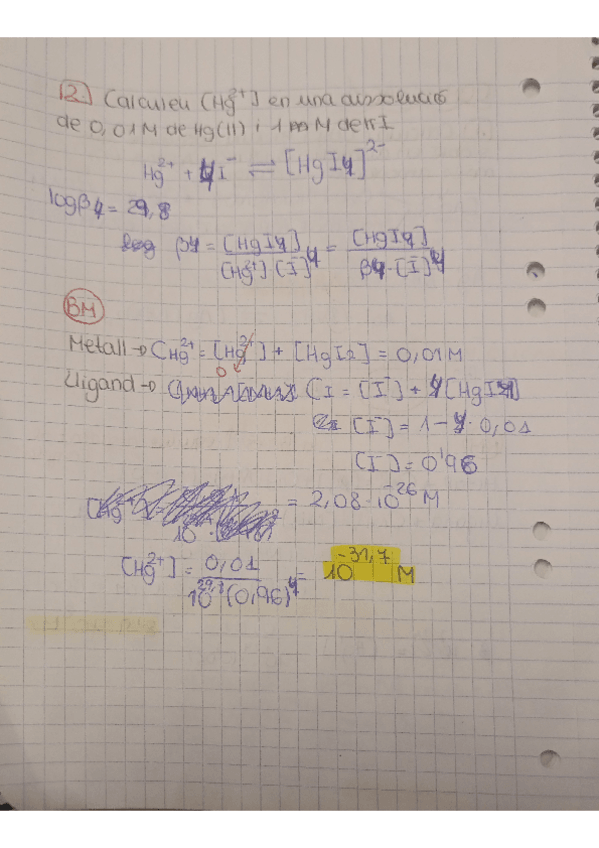 12 Calculeu [Hg²⁺] en una dissolució
de 0,01M de Hg(II) i 1 M de KI
Hg²⁺ + 4I⁻ ⇌ [HgI4]²⁻
logβ4 = 29,8
β4 = [HgI4] / [Hg²⁺][I⁻]⁴ = [HgI4] / β4·[I⁻]⁴
BM
Metall → CHg²⁺ = [Hg²⁺] + [HgI2] = 0,01M
0
Lligand → CI = [I⁻] + 4[HgI4]
[I⁻] = 1 - 4·0,01
[I⁻] = 0'96
= 2,08·10⁻²⁶ M
[Hg²⁺] = 0,01 / 10²⁹,⁸(0,96)⁴ = 10⁻³¹,⁷ M